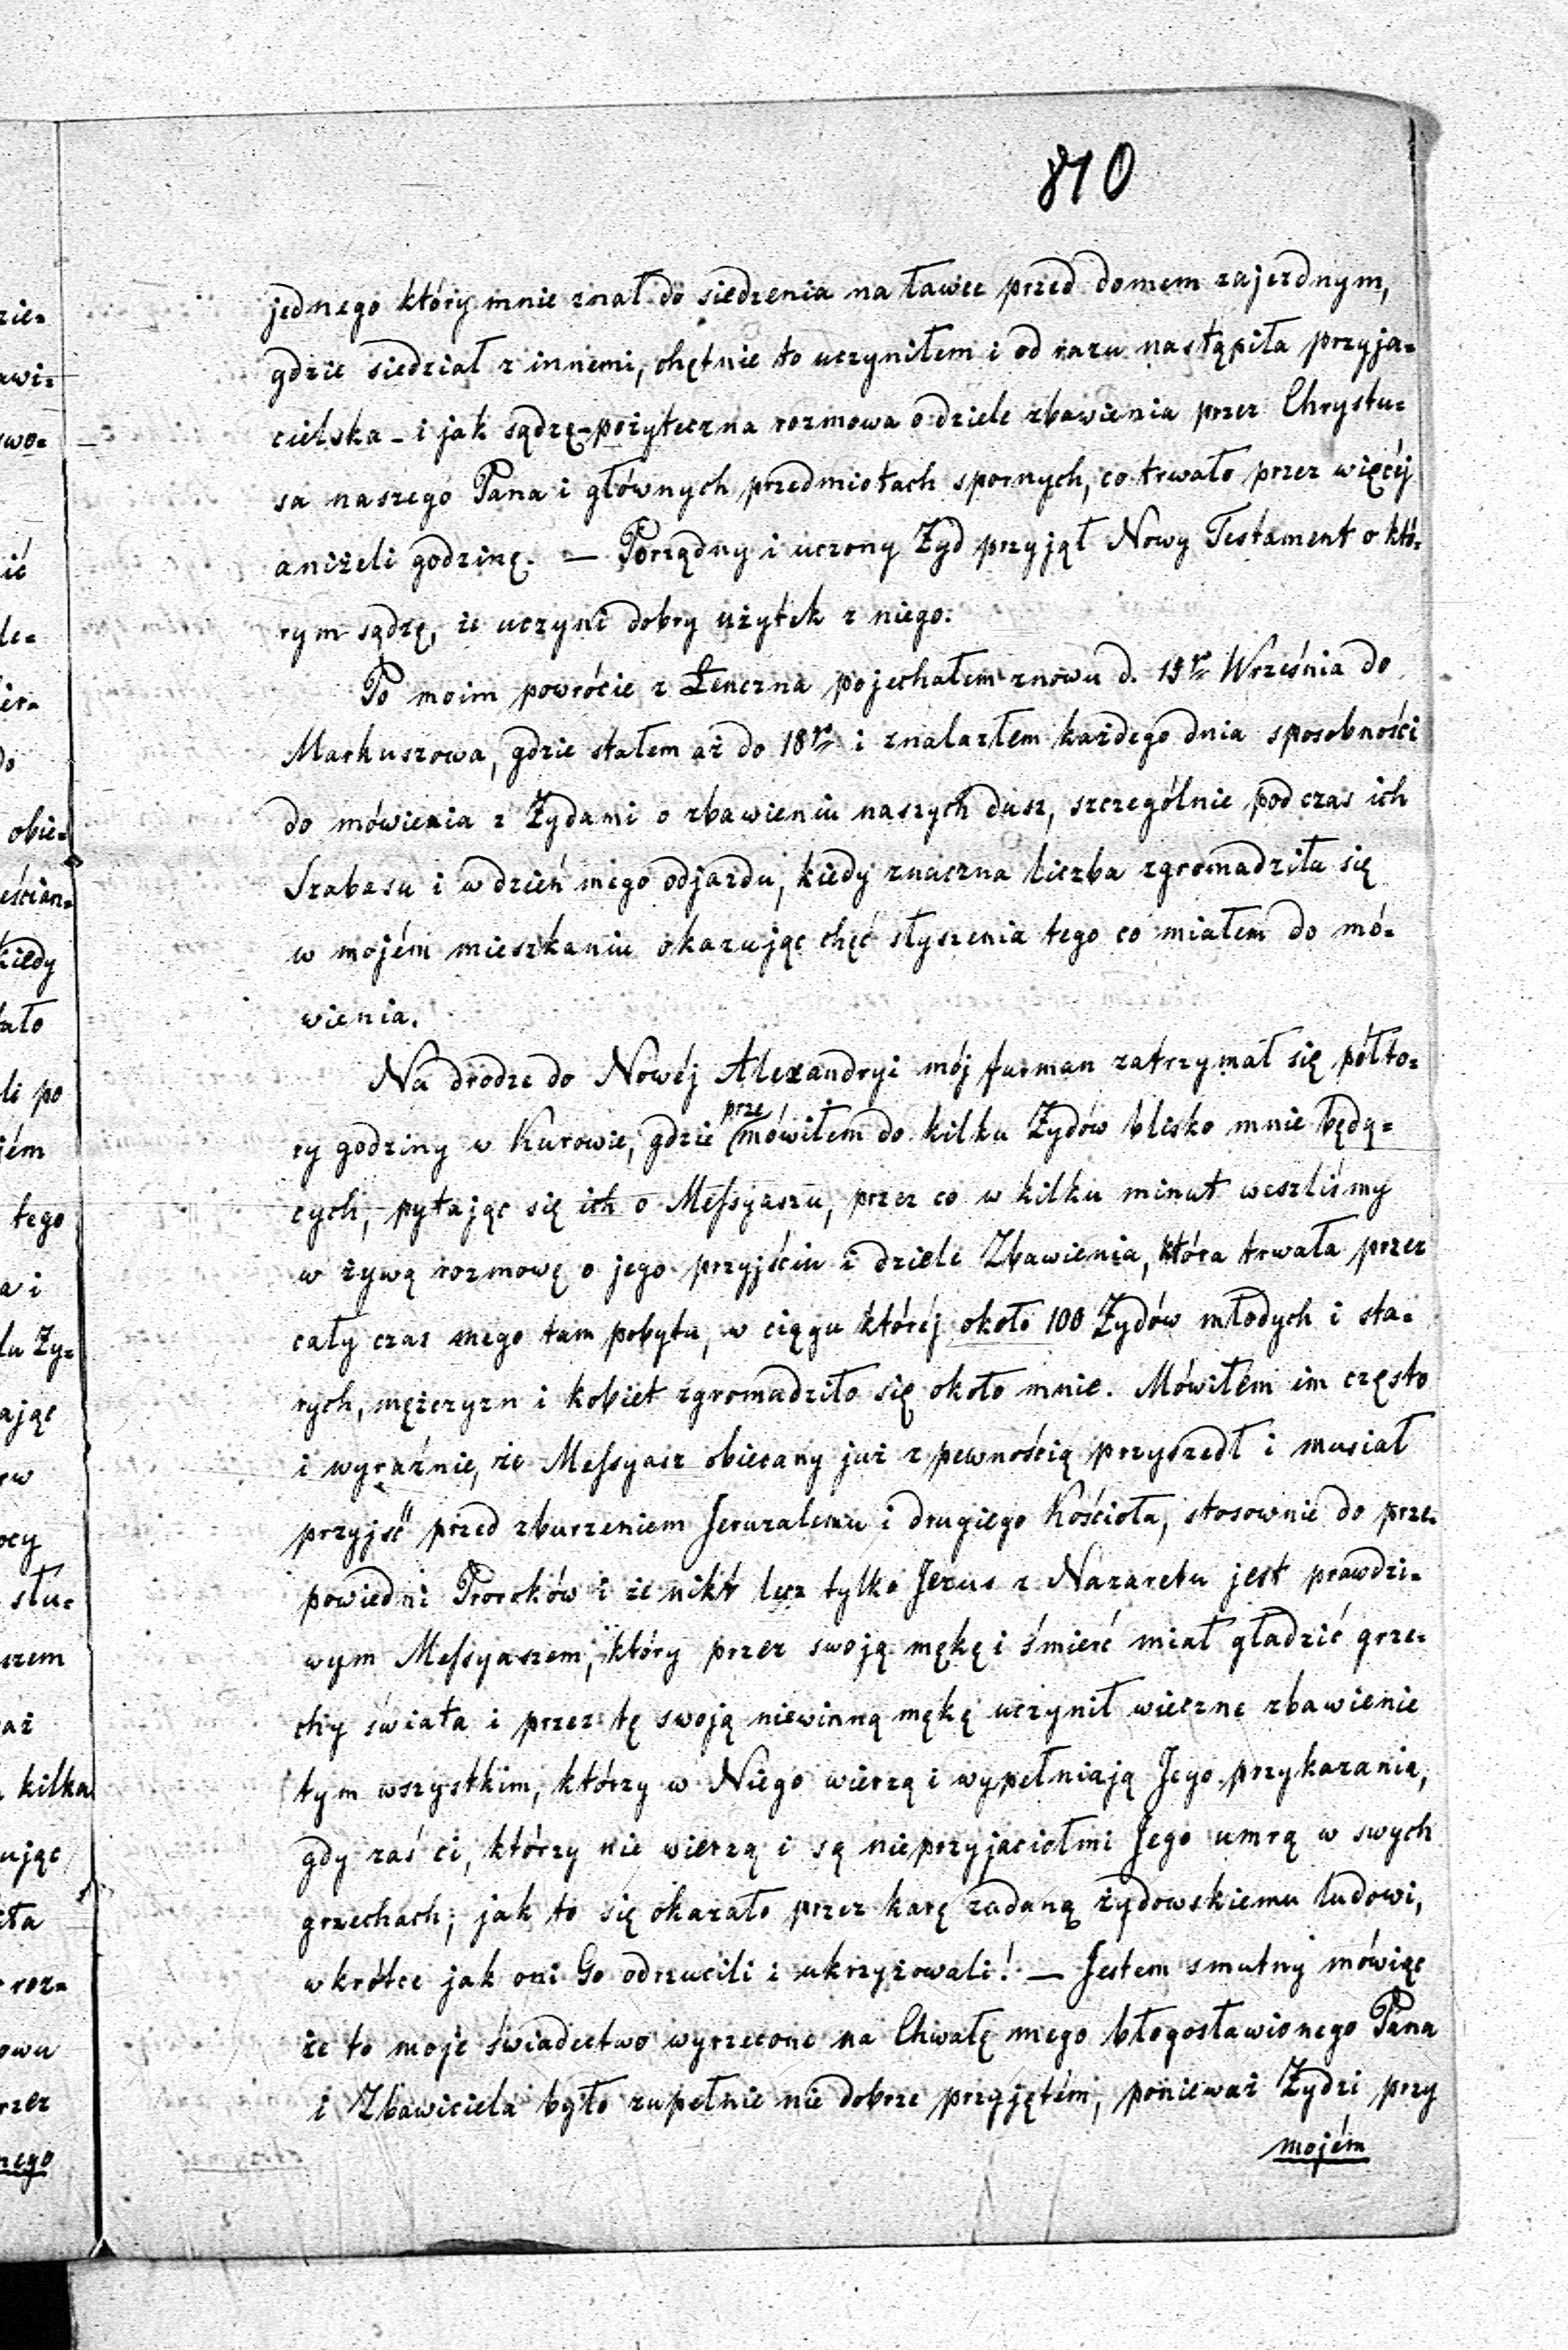 810
jednego który mnie znał do siedzenia na ławce przed domem zajezdnym,
gdzie siedział z innemi, chętnie to uczyniłem i od razu nastąpiła przyja=
cielska – i jak sądzę – pożyteczna rozmowa o dziele zbawienia przez Chrystu=
sa naszego Pana i głównych przedmiotach spornych, co trwało przez więcéj
aniżeli godzinę. — Porządny i uczony Żyd przyjął Nowy Testament o któ=
rym sądzę, że uczyni dobry użytek z niego.
Po moim powrócie z Łenczna pojechałem znowu d. 15go Września do
Markuszowa, gdzie stałem aż do 18go i znalazłem każdego dnia sposobności
do mówienia z Żydami o zbawieniu naszych dusz, szczególnie podczas ich
Szabasu i w dzień mego odjazdu, kiedy znaczna liczba zgromadziła się
w mojém mieszkaniu okazując chęć słyszenia tego co miałem do mó=
wienia.
Na drodze do Nowéj Alexandryi mój furman zatrzymał się półto=
ry godziny w Kurowie, gdzie przemówiłem do kilku Żydów blisko mnie będą=
cych, pytając się ich o Messyaszu, przez co w kilku minut weszliśmy
w żywą rozmowę o jego przyjściu i dziele Zbawienia, która trwała przez
cały czas mego tam pobytu, w ciągu któréj około 100 Żydów młodych i sta=
rych, mężczyzn i kobiet zgromadziło się około mnie. Mówiłem im często
i wyraźnie, że Messyasz obiecany już z pewnością przyszedł i musiał
przyjść przed zburzeniem Jeruzalemu i drugiego Kościoła, stosownie do prze=
powiedni Proroków i że nikt lecz tylko Jezus z Nazaretu jest prawdzi=
wym Messyaszem, który przez swoją mękę i śmierć miał gładzić grze=
chy świata i przez tę swoją niewinną mękę uczynił wieczne zbawienie
tym wszystkim, którzy w Niego wierzą i wypełniają Jego przykazania,
gdy zaś ci, którzy nie wierzą i są nieprzyjaciołmi Jego umrą w swych
grzechach; jak to się okazało przez karę zadaną żydowskiemu ludowi,
wkrótce jak oni Go odrzucili i ukrzyżowali! — Jestem smutny mówiąc
że to moje świadectwo wyrzeczone na Chwałę mego błogosławionego Pana
i Zbawiciela było zupełnie nie dobrze przyjętém, ponieważ Żydzi przy
mojém